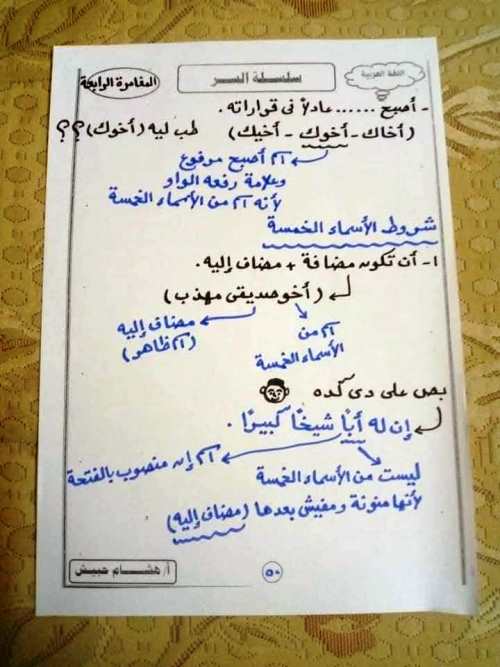 اللغة العربية
سلسلة السر
المغامرة الرابعة
- أصبح ...... عادلاً فى قراراته.
(أخاك - أخوك - أخيك) طب ليه (أخوك)؟؟
اسم أصبح مرفوع
وعلامة رفعه الواو
لأنه اسم من الأسماء الخمسة
شروط الأسماء الخمسة
١- أن تكون مضافة + مضاف إليه.
(أخو صديقى مهذب)
اسم من
الأسماء الخمسة
مضاف إليه
(اسم ظاهر)
بص على دى كده
إن له أبًا شيخًا كبيرًا.
اسم إن منصوب بالفتحة
ليست من الأسماء الخمسة
لأنها منونة ومفيش بعدها (مضاف إليه)
٥٠
أ/ هشام حبيش